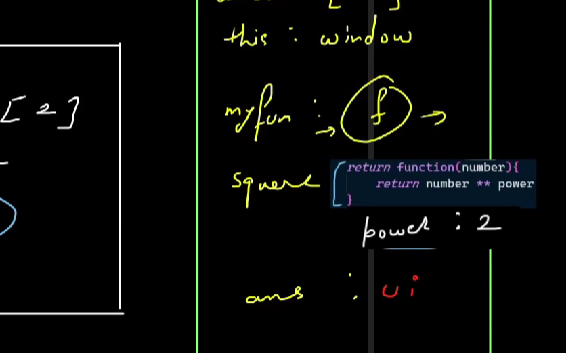 this : window
[2]
myfun :→ f →
square return function(number){
return number ** power
}
power : 2
ans : ui